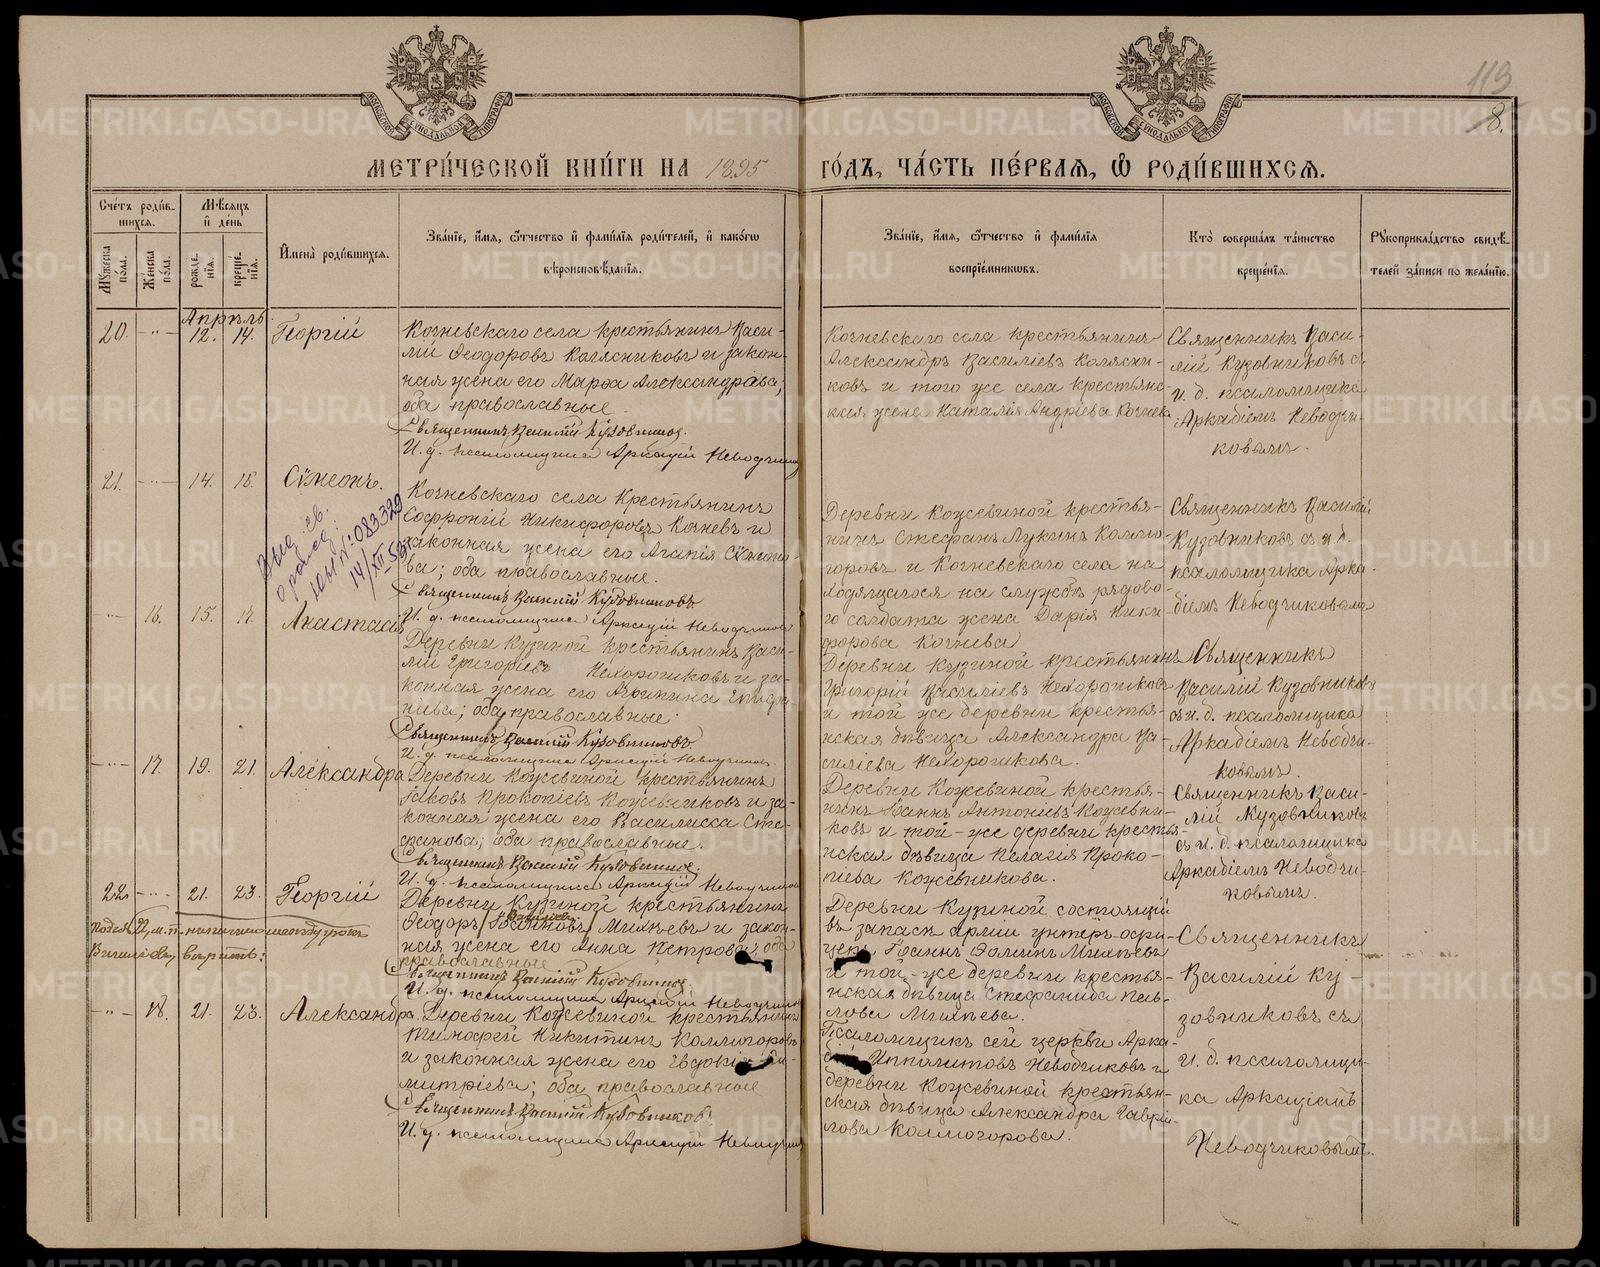 113
8.
МЕТРИ́ЧЕСКОЙ КНИ́ГИ НА 1895 ГО́ДЪ, ЧА́СТЬ ПЕ́РВАЯ, Ѡ РОДИ́ВШИХСЯ.
Сче́тъ роди́вшихся.
Мꙋ́жеска по́ла.
Же́нска по́ла.
Мѣ́сяцъ и де́нь
рожде́нїя.
креще́нїя.
И́мена роди́вшихся.
Зва́нїе, и́мя, ѻ́тчество и фами́лїя роди́телей, и како́гѡ
вѣроисповѣ́данїя.
Зва́нїе, и́мя, ѻ́тчество и фами́лїя
воспрїе́мникѡвъ.
Кто̀ соверша́лъ та́инство
креще́нїя.
Рꙋкоприкла́дство свидѣ́телей за́писи по жела́нїю.
Апрѣль
20. -"- 12. 14. Георгій
Кочневскаго села крестьянинъ Васи-
лій Ѳеодоровъ Колясниковъ и закон-
ная жена его Марѳа Александрова;
оба православные.
Священникъ Василій Кузовниковъ.
И. д. псаломщика Аркадій Неводчиковъ
Кочневскаго села крестьянинъ
Александръ Василіевъ Колясни-
ковъ и того же села крестьянс-
кая жена Наталія Андріева Кочнева
Священникъ Васи-
лій Кузовниковъ съ
и. д. псаломщика
Аркадіемъ Неводчи-
ковымъ.
21. -"- 14. 18. Сѷмеонъ.
Выд. св.
о рожд.
ЮЫ № 083329
14/XII 55
Кочневскаго села Крестьянинъ
Софроній Никифоровъ Кочневъ и
законная жена его Агапія Сѷмеоно-
ва; оба православные.
Священникъ Василій Кузовниковъ
И. д. псаломщика Аркадій Неводчиковъ
Деревни Кожевиной крестья-
нинъ Стефанъ Лукинъ Колмо-
горовъ и Кочневскаго села на-
ходящагося на службѣ рядово-
го солдата жена Дарія Ники-
форова Кочнева
Священникъ Василій
Кузовниковъ съ и. д.
псаломщика Арка-
діемъ Неводчиковымъ
-"- 16. 15. 17. Анастасія
Деревни Кузиной крестьянинъ Васи-
лій Григоріевъ Нехорошковъ и за-
конная жена его
; оба православные.
Священникъ Василій Кузовниковъ.
И. д. псаломщика Аркадій Неводчиковъ.
Деревни Кузиной крестьянинъ
Григорій Василіевъ Нехорошковъ
и той же деревни крестья-
нская дѣвица Александра Ва-
силіева Нехорошкова.
Священникъ
Василій Кузовниковъ
съ и. д. псаломщика
Аркадіемъ Неводчи-
ковымъ.
-"- 17. 19. 21. Александра
Деревни Кожевиной крестьянинъ
Іаковъ Прокопіевъ Кожевниковъ и за-
конная жена его Василисса Сте-
фанова; оба православные.
Священникъ Василій Кузовниковъ.
И. д. псаломщика Аркадій Неводчиковъ
Деревни Кожевиной крестья-
нинъ Іоаннъ Антоніевъ Кожевни-
ковъ и той-же деревни крестья-
нская дѣвица Пелагія Проко-
піева Кожевникова.
Священникъ Васи-
лій Кузовниковъ
съ и. д. псаломщика
Аркадіемъ Неводчи-
ковымъ.
22 -"- 21. 23. Георгій
Подъ № 22 м. п. написано между строкъ
вѣрить:
Деревни Кузиной крестьянинъ
Ѳеодоръ /Іоанновъ/ Михѣевъ и закон-
ная жена его Анна Петрова; оба
православные
Священникъ Василій Кузовниковъ.
И. д. псаломщика Аркадій Неводчиковъ
Деревни Кузиной состоящій
въ запасѣ арміи унтеръ-офи-
церъ Іоаннъ Михѣевъ
и той-же деревни крестья-
нская дѣвица Стефанида Пав-
лова Михѣева.
Священникъ
Василій Ку-
зовниковъ съ
и. д. псаломщи-
ка Аркадіемъ
Неводчиковымъ.
-"- 18. 21. 23. Александра.
Деревни Кожевиной крестьянинъ
Тимофей Никитинъ Колмогоровъ
и законная жена его Евдокія Ди-
митріева; оба православные
Священникъ Василій Кузовниковъ.
И. д. псаломщика Аркадій Неводчиковъ
Псаломщикъ сей церкви Арка-
дій Ипполитовъ Неводчиковъ и
деревни Кожевиной крестьян-
ская дѣвица Александра Гаврі-
лова Колмогорова.